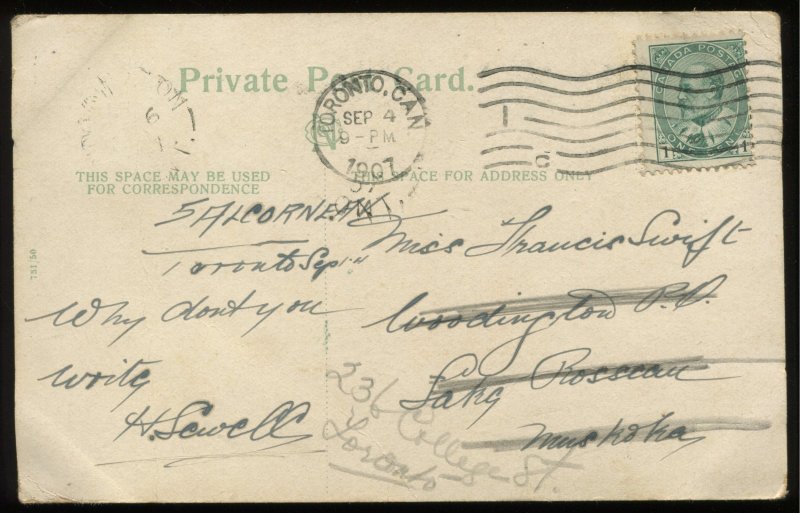 Private Post Card.
TORONTO, CAN.
SEP 4
9-PM
1907
ONT.
CANADA POSTAGE
ONE CENT
1 1
THIS SPACE MAY BE USED
FOR CORRESPONDENCE
THIS SPACE FOR ADDRESS ONLY
751/50
5 Alcorne Av
Toronto Sep
Why dont you
write
H. Sewell
Miss Francis Swift
Woodington P.O.
Lake Rosseau
Muskoka
236 College St.
Toronto